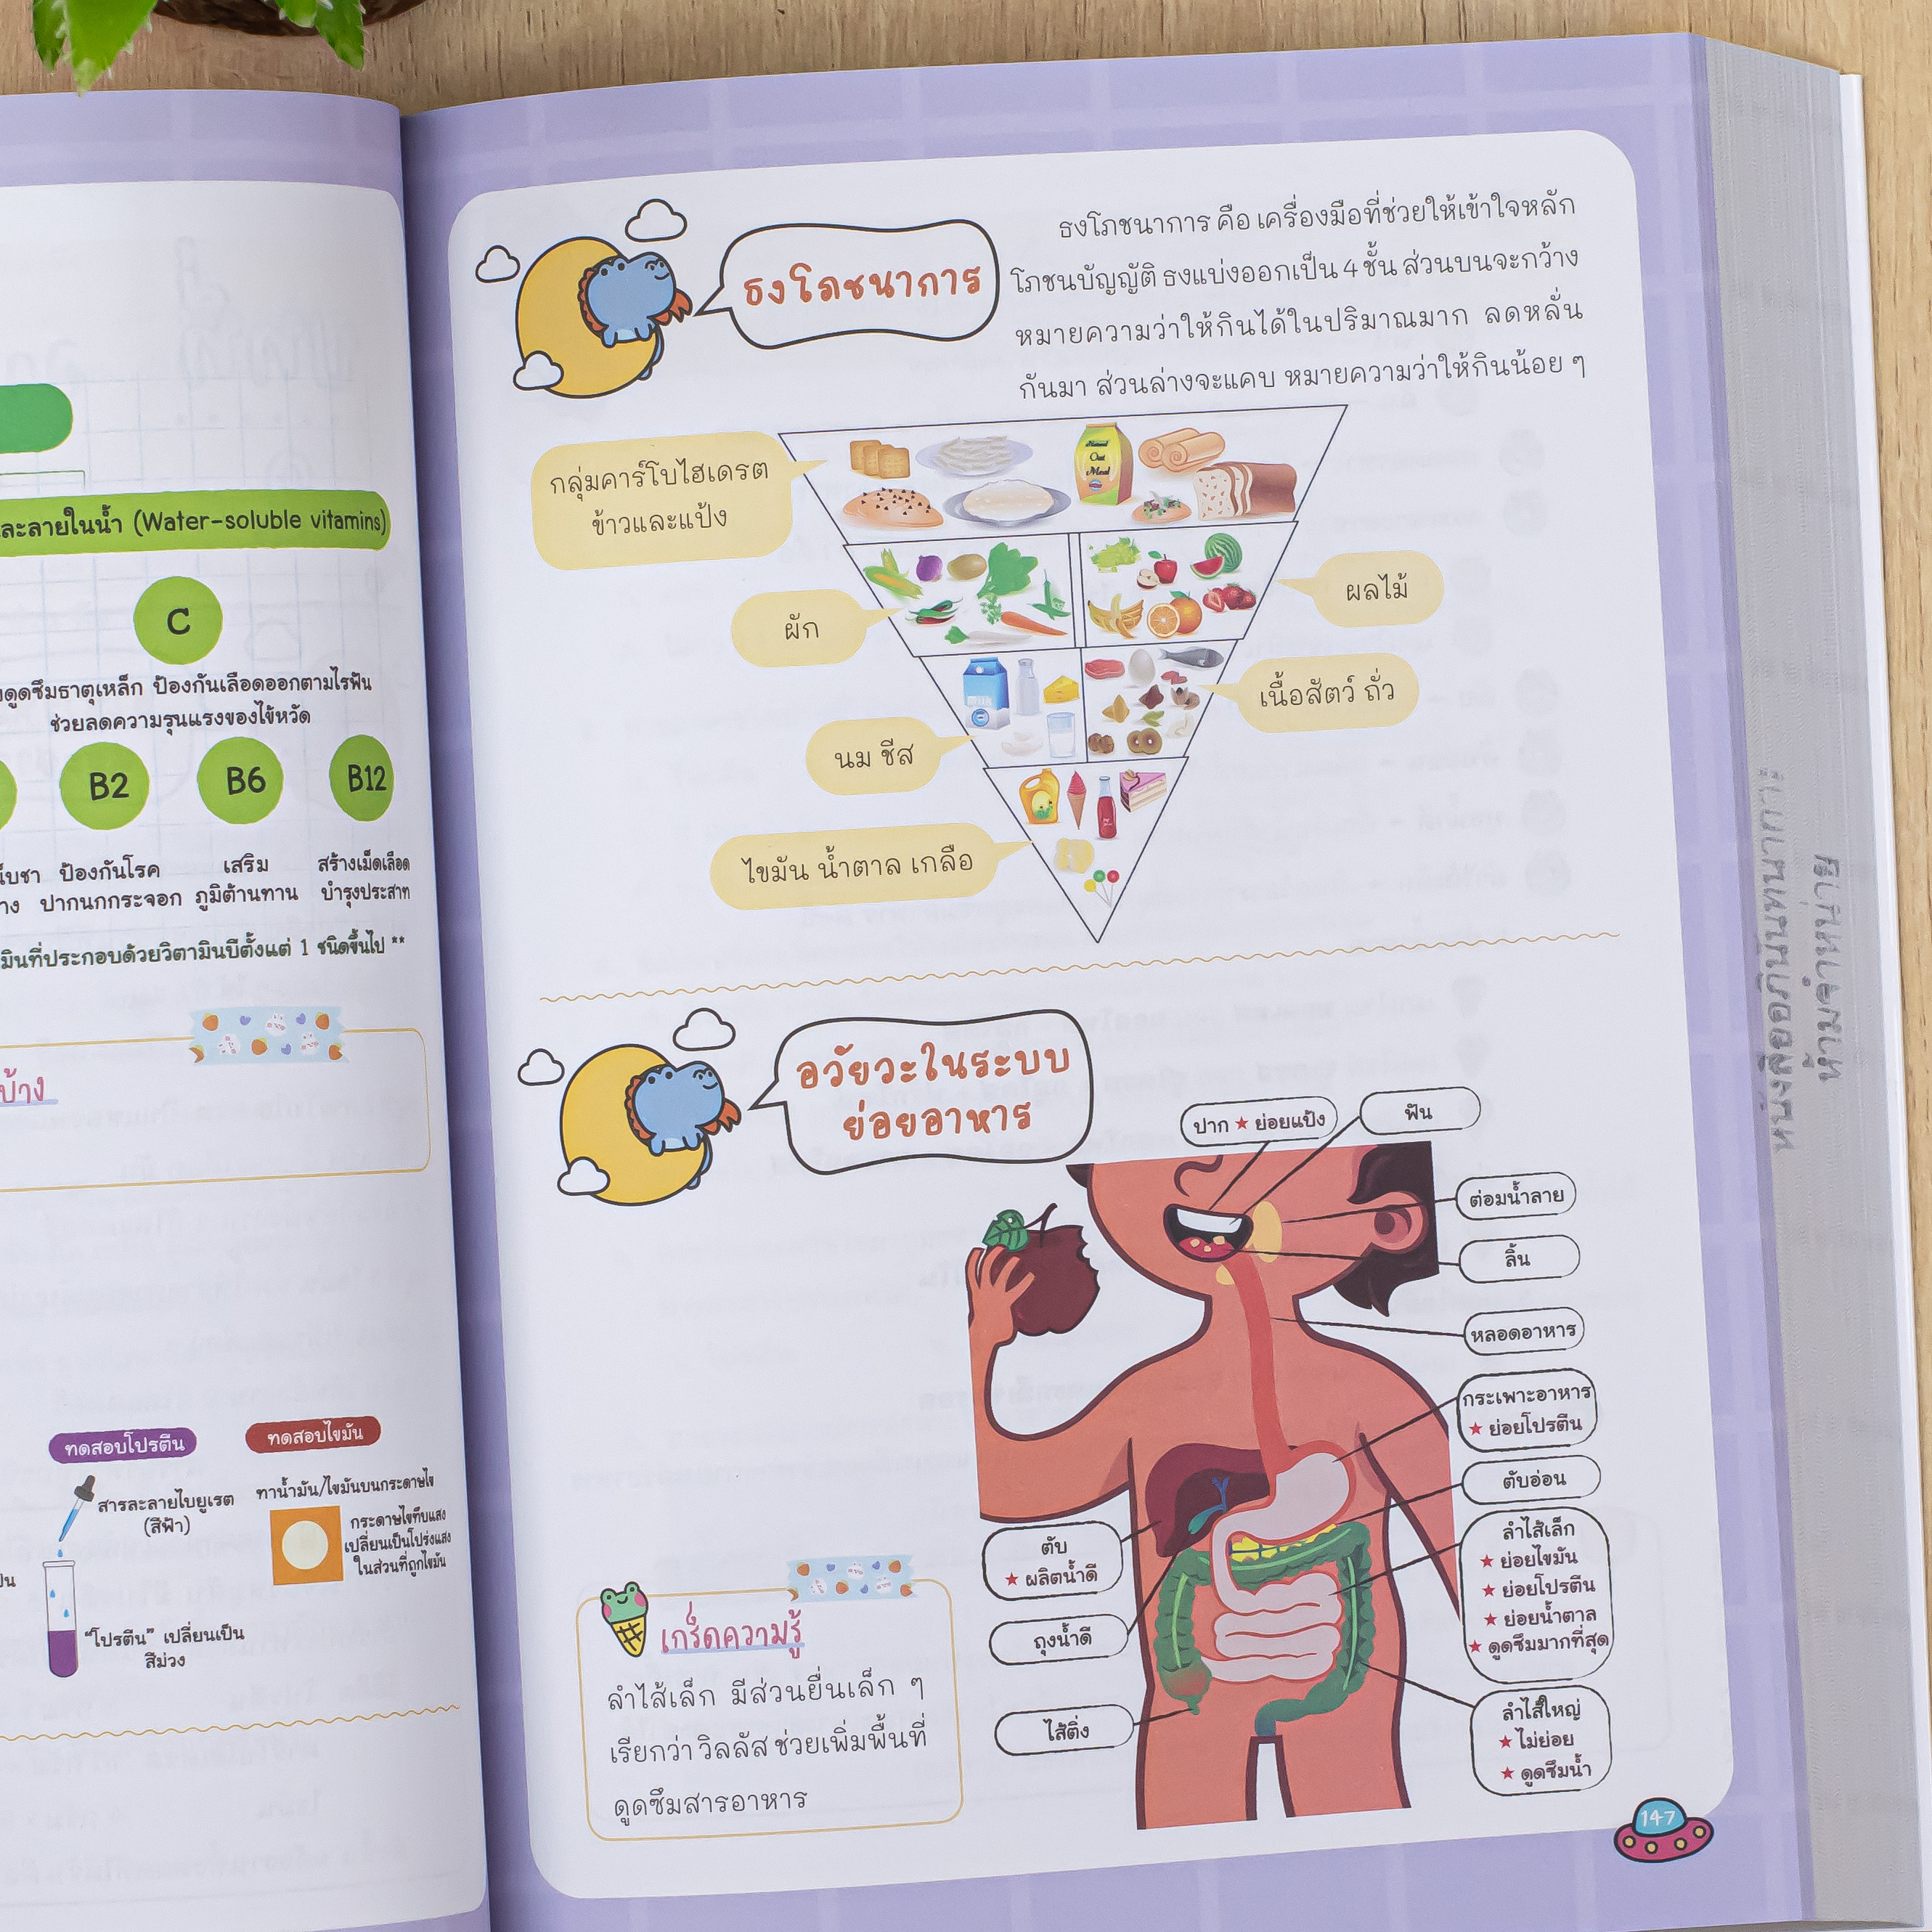 ละลายในน้ำ (Water-soluble vitamins)
C
ดูดซึมธาตุเหล็ก ป้องกันเลือดออกตามไรฟัน
ช่วยลดความรุนแรงของไข้หวัด
B2 B6 B12
ป้องกันโรค เสริม สร้างเม็ดเลือด
ปากนกกระจอก ภูมิต้านทาน บำรุงประสาท
มินที่ประกอบด้วยวิตามินบีตั้งแต่ 1 ชนิดขึ้นไป **
บ้าง
ทดสอบโปรตีน
สารละลายไบยูเรต
(สีฟ้า)
"โปรตีน" เปลี่ยนเป็น
สีม่วง
ทดสอบไขมัน
ทาน้ำมัน/ไขมันบนกระดาษไข
กระดาษไขทึบแสง
เปลี่ยนเป็นโปร่งแสง
ในส่วนที่ถูกไขมัน
ธงโภชนาการ
ธงโภชนาการ คือ เครื่องมือที่ช่วยให้เข้าใจหลัก
โภชนบัญญัติ ธงแบ่งออกเป็น 4 ชั้น ส่วนบนจะกว้าง
หมายความว่าให้กินได้ในปริมาณมาก ลดหลั่น
กันมา ส่วนล่างจะแคบ หมายความว่าให้กินน้อย ๆ
กลุ่มคาร์โบไฮเดรต
ข้าวและแป้ง
Natural
Oat
Meal
ผัก
ผลไม้
นม ชีส
MILK
เนื้อสัตว์ ถั่ว
ไขมัน น้ำตาล เกลือ
อวัยวะในระบบ
ย่อยอาหาร
ปาก ★ ย่อยแป้ง
ฟัน
ต่อมน้ำลาย
ลิ้น
หลอดอาหาร
กระเพาะอาหาร
★ ย่อยโปรตีน
ตับอ่อน
ลำไส้เล็ก
★ ย่อยไขมัน
★ ย่อยโปรตีน
★ ย่อยน้ำตาล
★ ดูดซึมมากที่สุด
ลำไส้ใหญ่
★ ไม่ย่อย
★ ดูดซึมน้ำ
ตับ
★ ผลิตน้ำดี
ถุงน้ำดี
ไส้ติ่ง
เกร็ดความรู้
ลำไส้เล็ก มีส่วนยื่นเล็ก ๆ
เรียกว่า วิลลัส ช่วยเพิ่มพื้นที่
ดูดซึมสารอาหาร
147